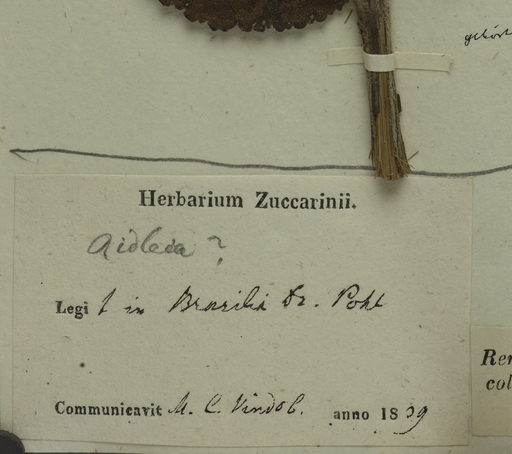 gehört
Herbarium Zuccarinii.
Aidleia ?
Legi t in Brasilia Dr. Pohl
Rer
col
Communicavit M. C. Vindob. anno 1839